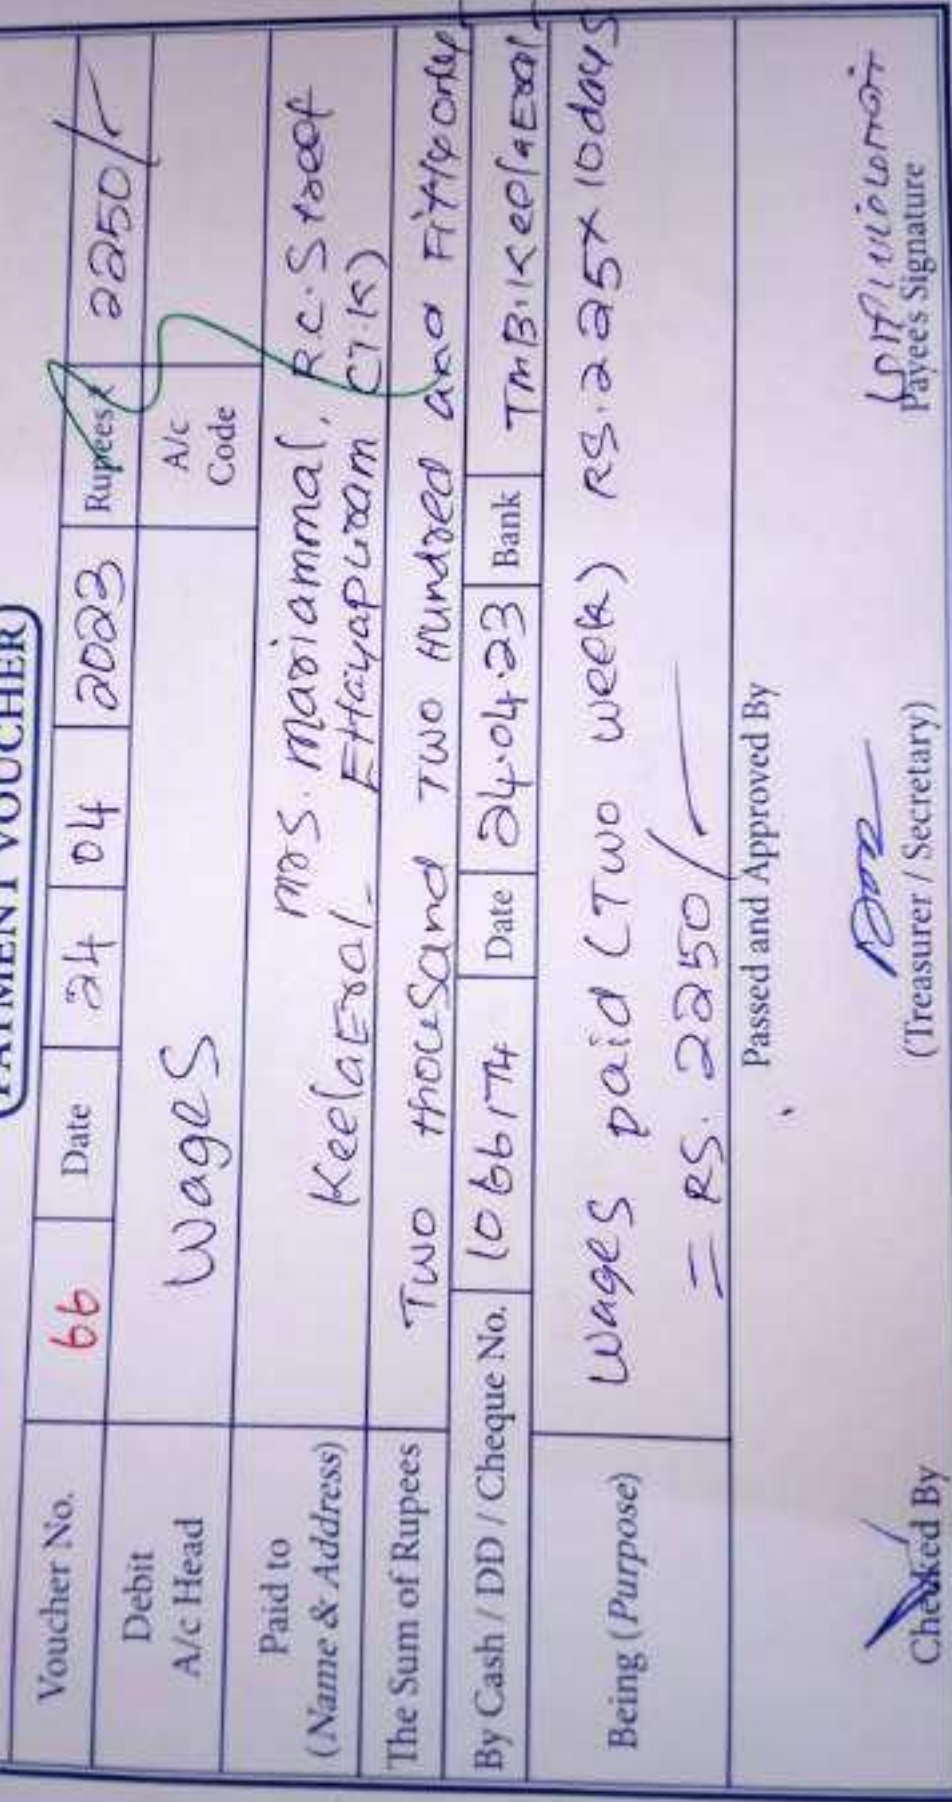 PAYMENT VOUCHER
Voucher No. 66 Date 24 04 2023 Rupees 2250/-
Debit
A/c Head
Wages
A/c
Code
Paid to
(Name & Address)
Mrs. Mariammal, R.C. Street
KeelaEral, Ettayapuram (T.K)
The Sum of Rupees Two thousand Two Hundred and Fifty only
By Cash / DD / Cheque No. 106617 Date 24.04.23 Bank TMB, KeelaEral
Being (Purpose) Wages paid (Two week) RS. 225 X 10 days
= RS. 2250/-
Passed and Approved By
Checked By (Treasurer / Secretary) Payees Signature